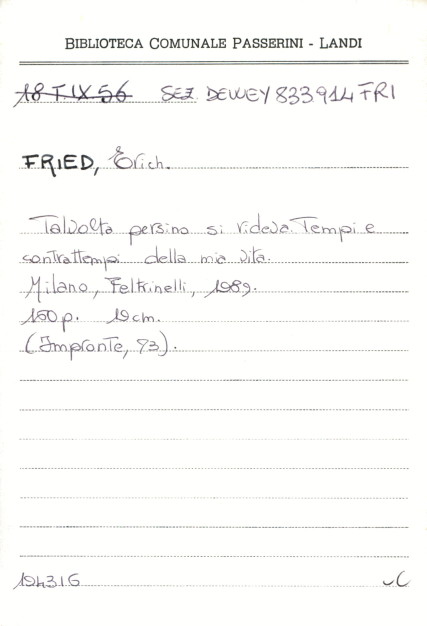 BIBLIOTECA COMUNALE PASSERINI - LANDI
18 T IX 56 SEZ DEWEY 833914 FRI
FRIED, Erich.
Talvolta persino si rideva. Tempi e
contrattempi della mia vita.
Milano, Feltrinelli, 1989.
160 p. 19 cm.
(Impronte, 93).
194316